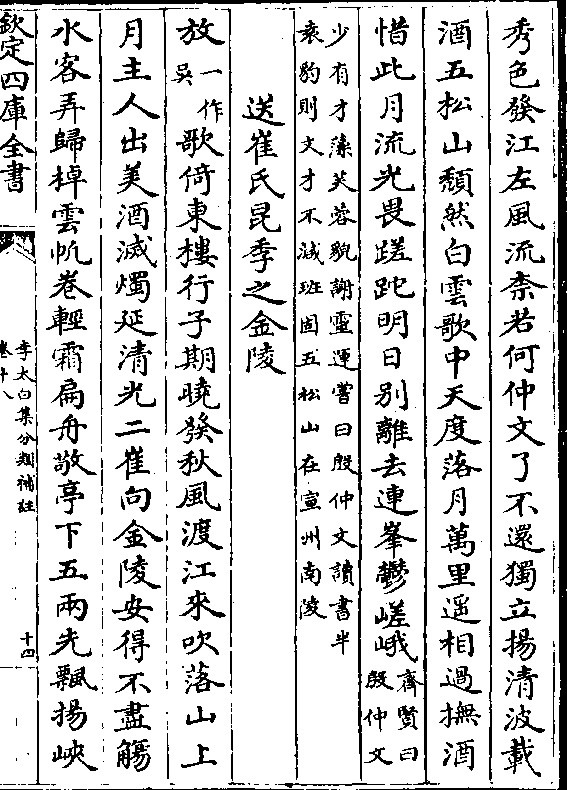 秀色發江左風流柰若何仲文了不還獨立揚清波載
酒五松山頹然白雲歌中天度落月萬里遥相過撫酒
惜此月流光畏蹉跎明日别離去連峯鬱嵯峨齊賢曰殷仲文
少有才藻美容貌謝靈運嘗曰殷仲文讀書半
袁豹則文才不減班固五松山在宣州南陵
送崔氏昆季之金陵
放一作吳歌倚東樓行子期曉發秋風渡江來吹落山上
月主人出美酒滅燭延清光二崔向金陵安得不盡觴
水客弄歸棹雲帆卷輕霜扁舟敬亭下五兩先飄揚峽
欽定四庫全書
李太白集分類補註
卷十八
十四